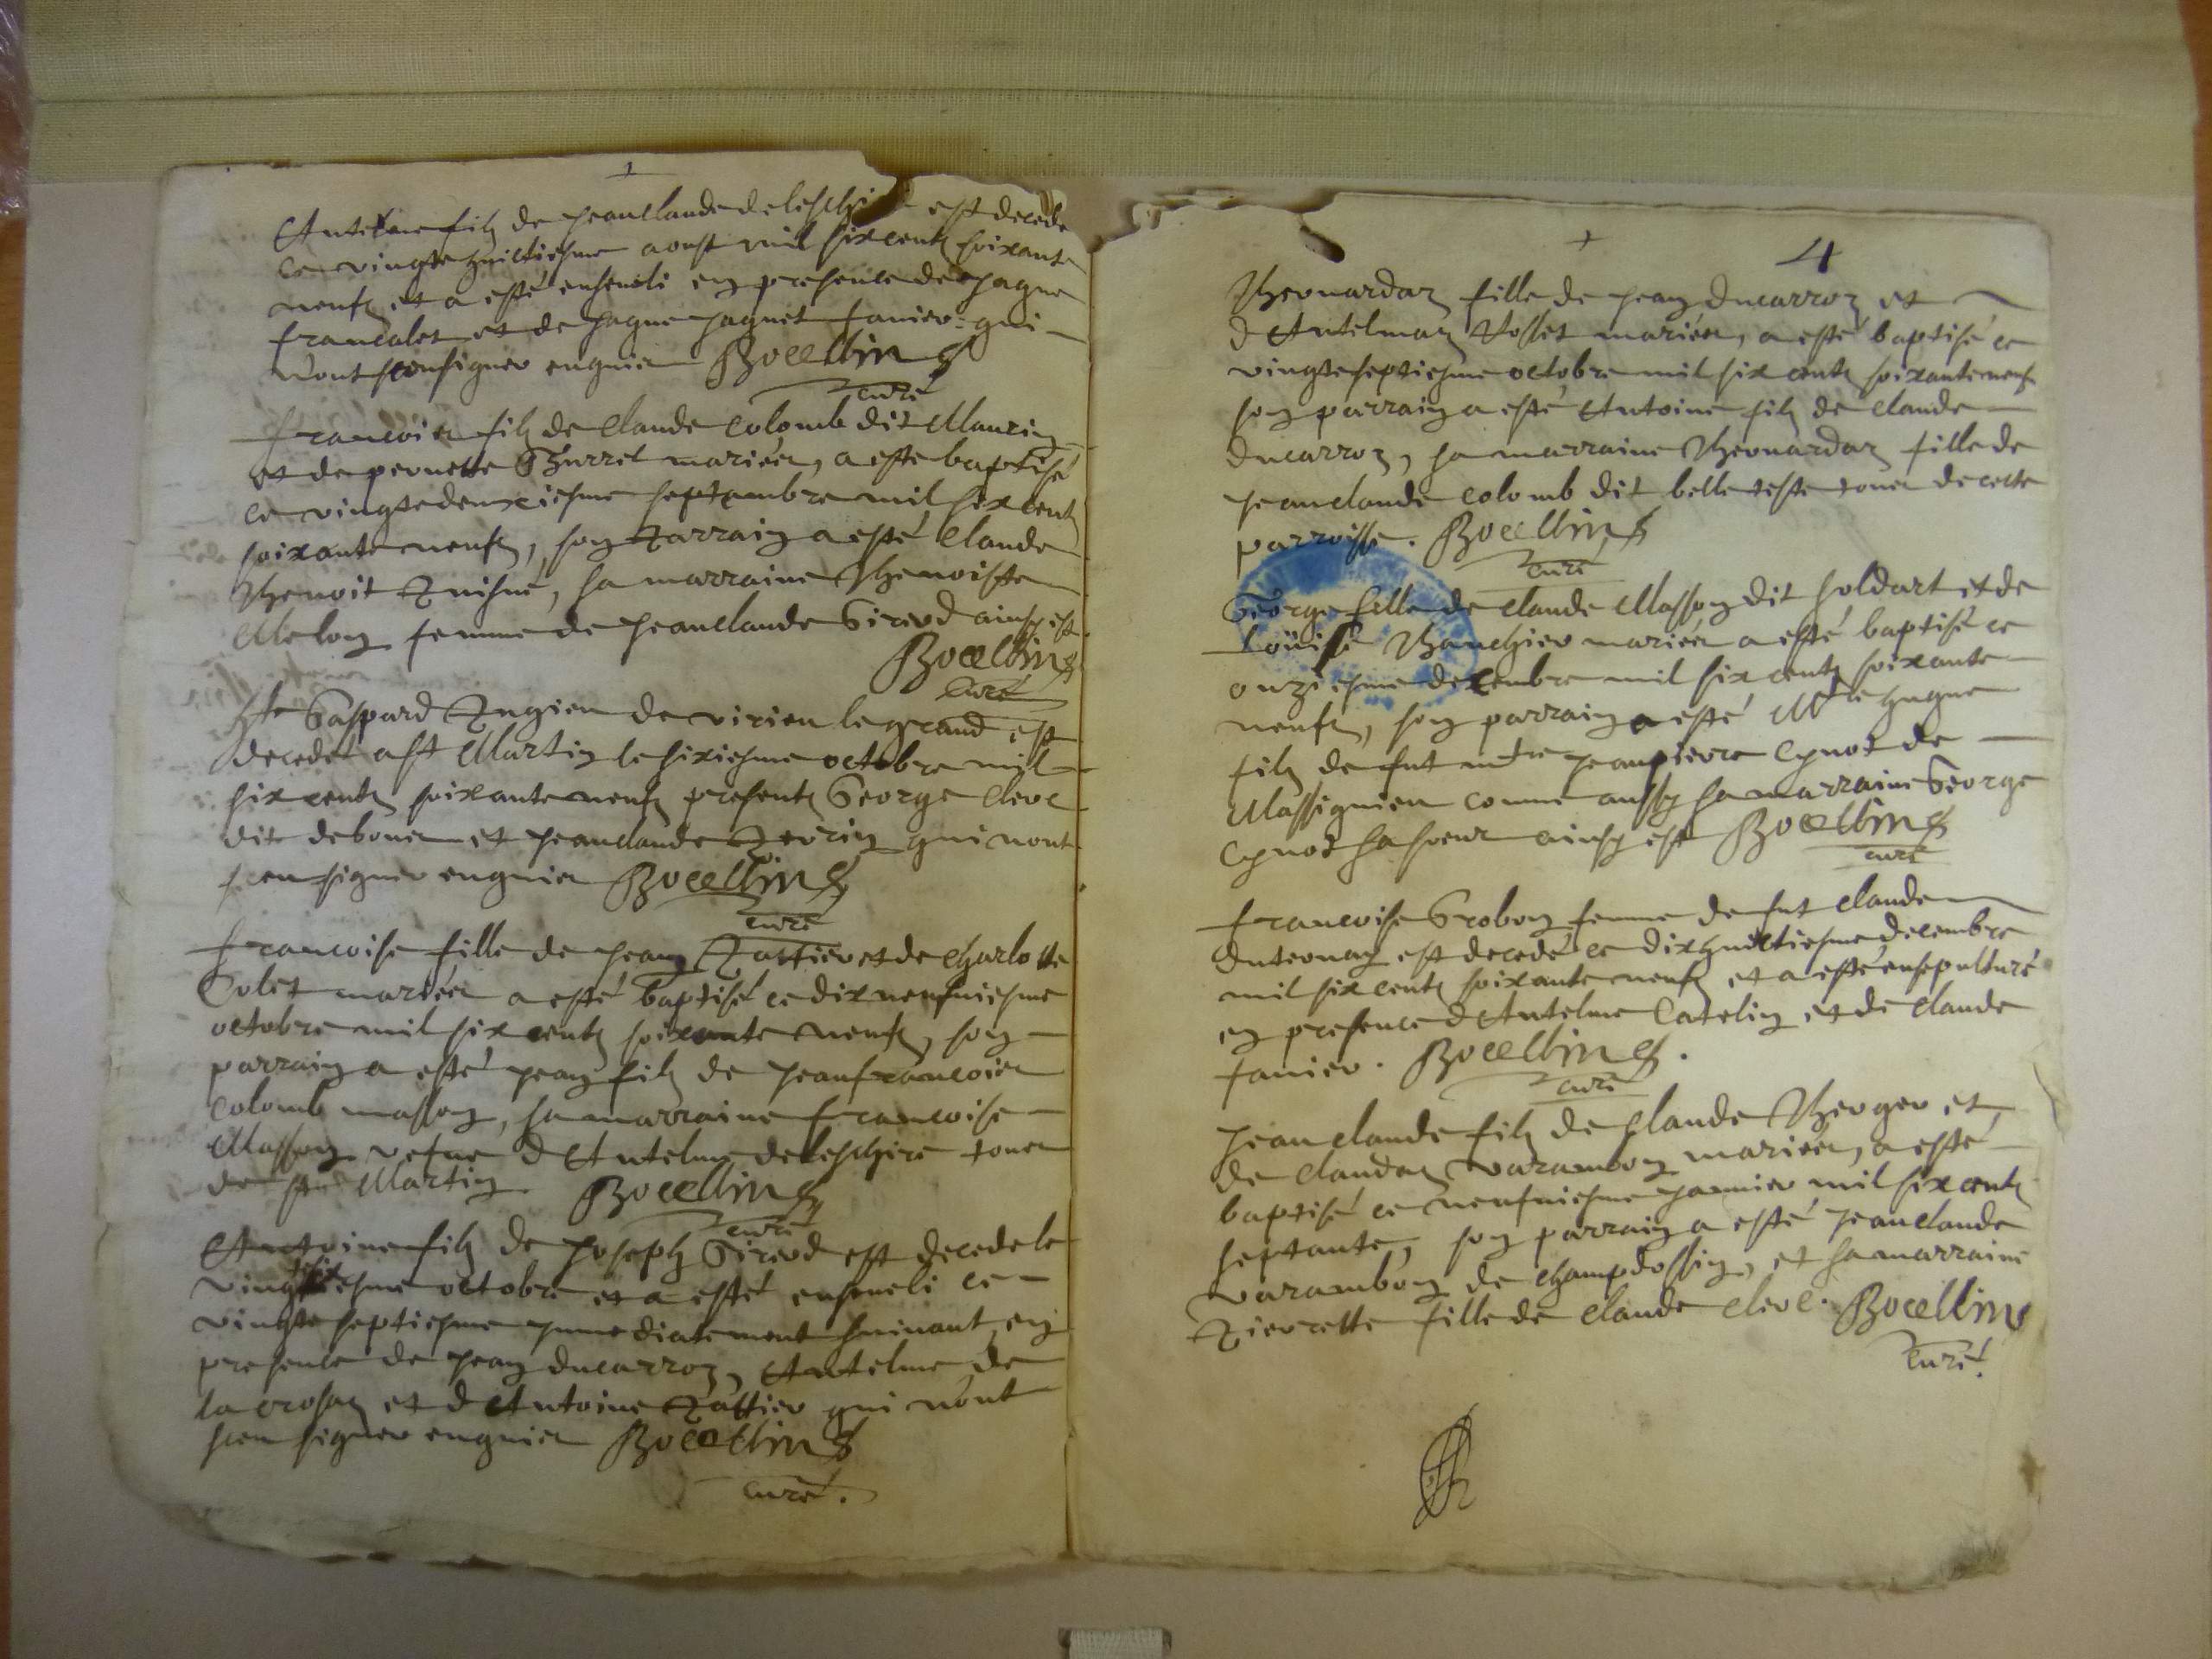 Antelme filz de Jeanclaude delesch est decede
ce vingtehuictiesme aoust mil sixcentz soixante
neufz et a esté enseveli en presence de Jaque
francalet et de Jaque Jaquet tanier qui
nont sceu signer enquis Bocellin
curé
francois filz de Claude Colomb dit Maurin
et de pernette Burret mariés, a esté baptisé
ce vingtedeuxiesme septambre mil sixcentz
soixante neufz, son Parrain a esté Claude
Benoit, sa marraine Benoiste
Melon femme de Jeanclaude Girerd ainsy est
Bocellin
curé
Gaspard de virieu le grand est
decedet a St Martin le sixiesme octobre mil
six centz soixante neufz presentz George Clerc
dit debones et Jeanclaude Perrin qui nont
sceu signer enquis Bocellin
curé
francoise fille de Jean et de Charlotte
Colet mariés a esté baptisé ce dix neufviesme
octobre mil six centz soixante neufz, son
parrain a esté Jean filz de Jeanfrancois
Colomb masson, sa marraine francoise
Masson vefve d'Antelme deleschire tous
de St Martin Bocellin
curé
Antoine filz de Joseph Girerd est decede le
octobre et a esté enseveli ce
vingte septiesme immediatement suivant en
presence de Jean Ducarroz, Antelme de
la crosaz et d'Antoine qui n'ont
sceu signer enquis Bocellin
curé.
4
Bernardaz fille de Jean Ducarroz et
d'Antelmaz mariés, a esté baptisé ce
vingteseptiesme octobre mil six centz soixanteneufz
son parrain a esté Antoine filz de Claude
Ducarroz, sa marraine Bernardaz fille de
Jeanclaude Colomb dit belleteste tous de ceste
parroisse. Bocellin
curé
George fille de Claude Masson dit soldart et de
Loüise mariés a esté baptisé ce
onziesme decembre mil six centz soixante
neufz, son parrain a esté Mre hugue
filz de fut mtre Jeanpierre Cynod de
Massignieu comme aussy sa marraine George
Cynod sa soeur ainsy est Bocellin
curé
francoise Grobon femme de fut Claude
Duternay est decedé ce dixhuictiesme decembre
mil six centz soixante neufz et a esté ensepulturé
en presence d'Antelme Catelin et de Claude
tanier. Bocellin.
curé
Jeanclaude filz de Claude Berger et
de Claudaz Varambon mariés, a esté
baptisé ce neufviesme Janvier mil sixcentz
septante, son parrain a esté Jeanclaude
Varambon de Champdossin, et sa marraine
Pierrette fille de Claude Clerc. Bocellin
curé.